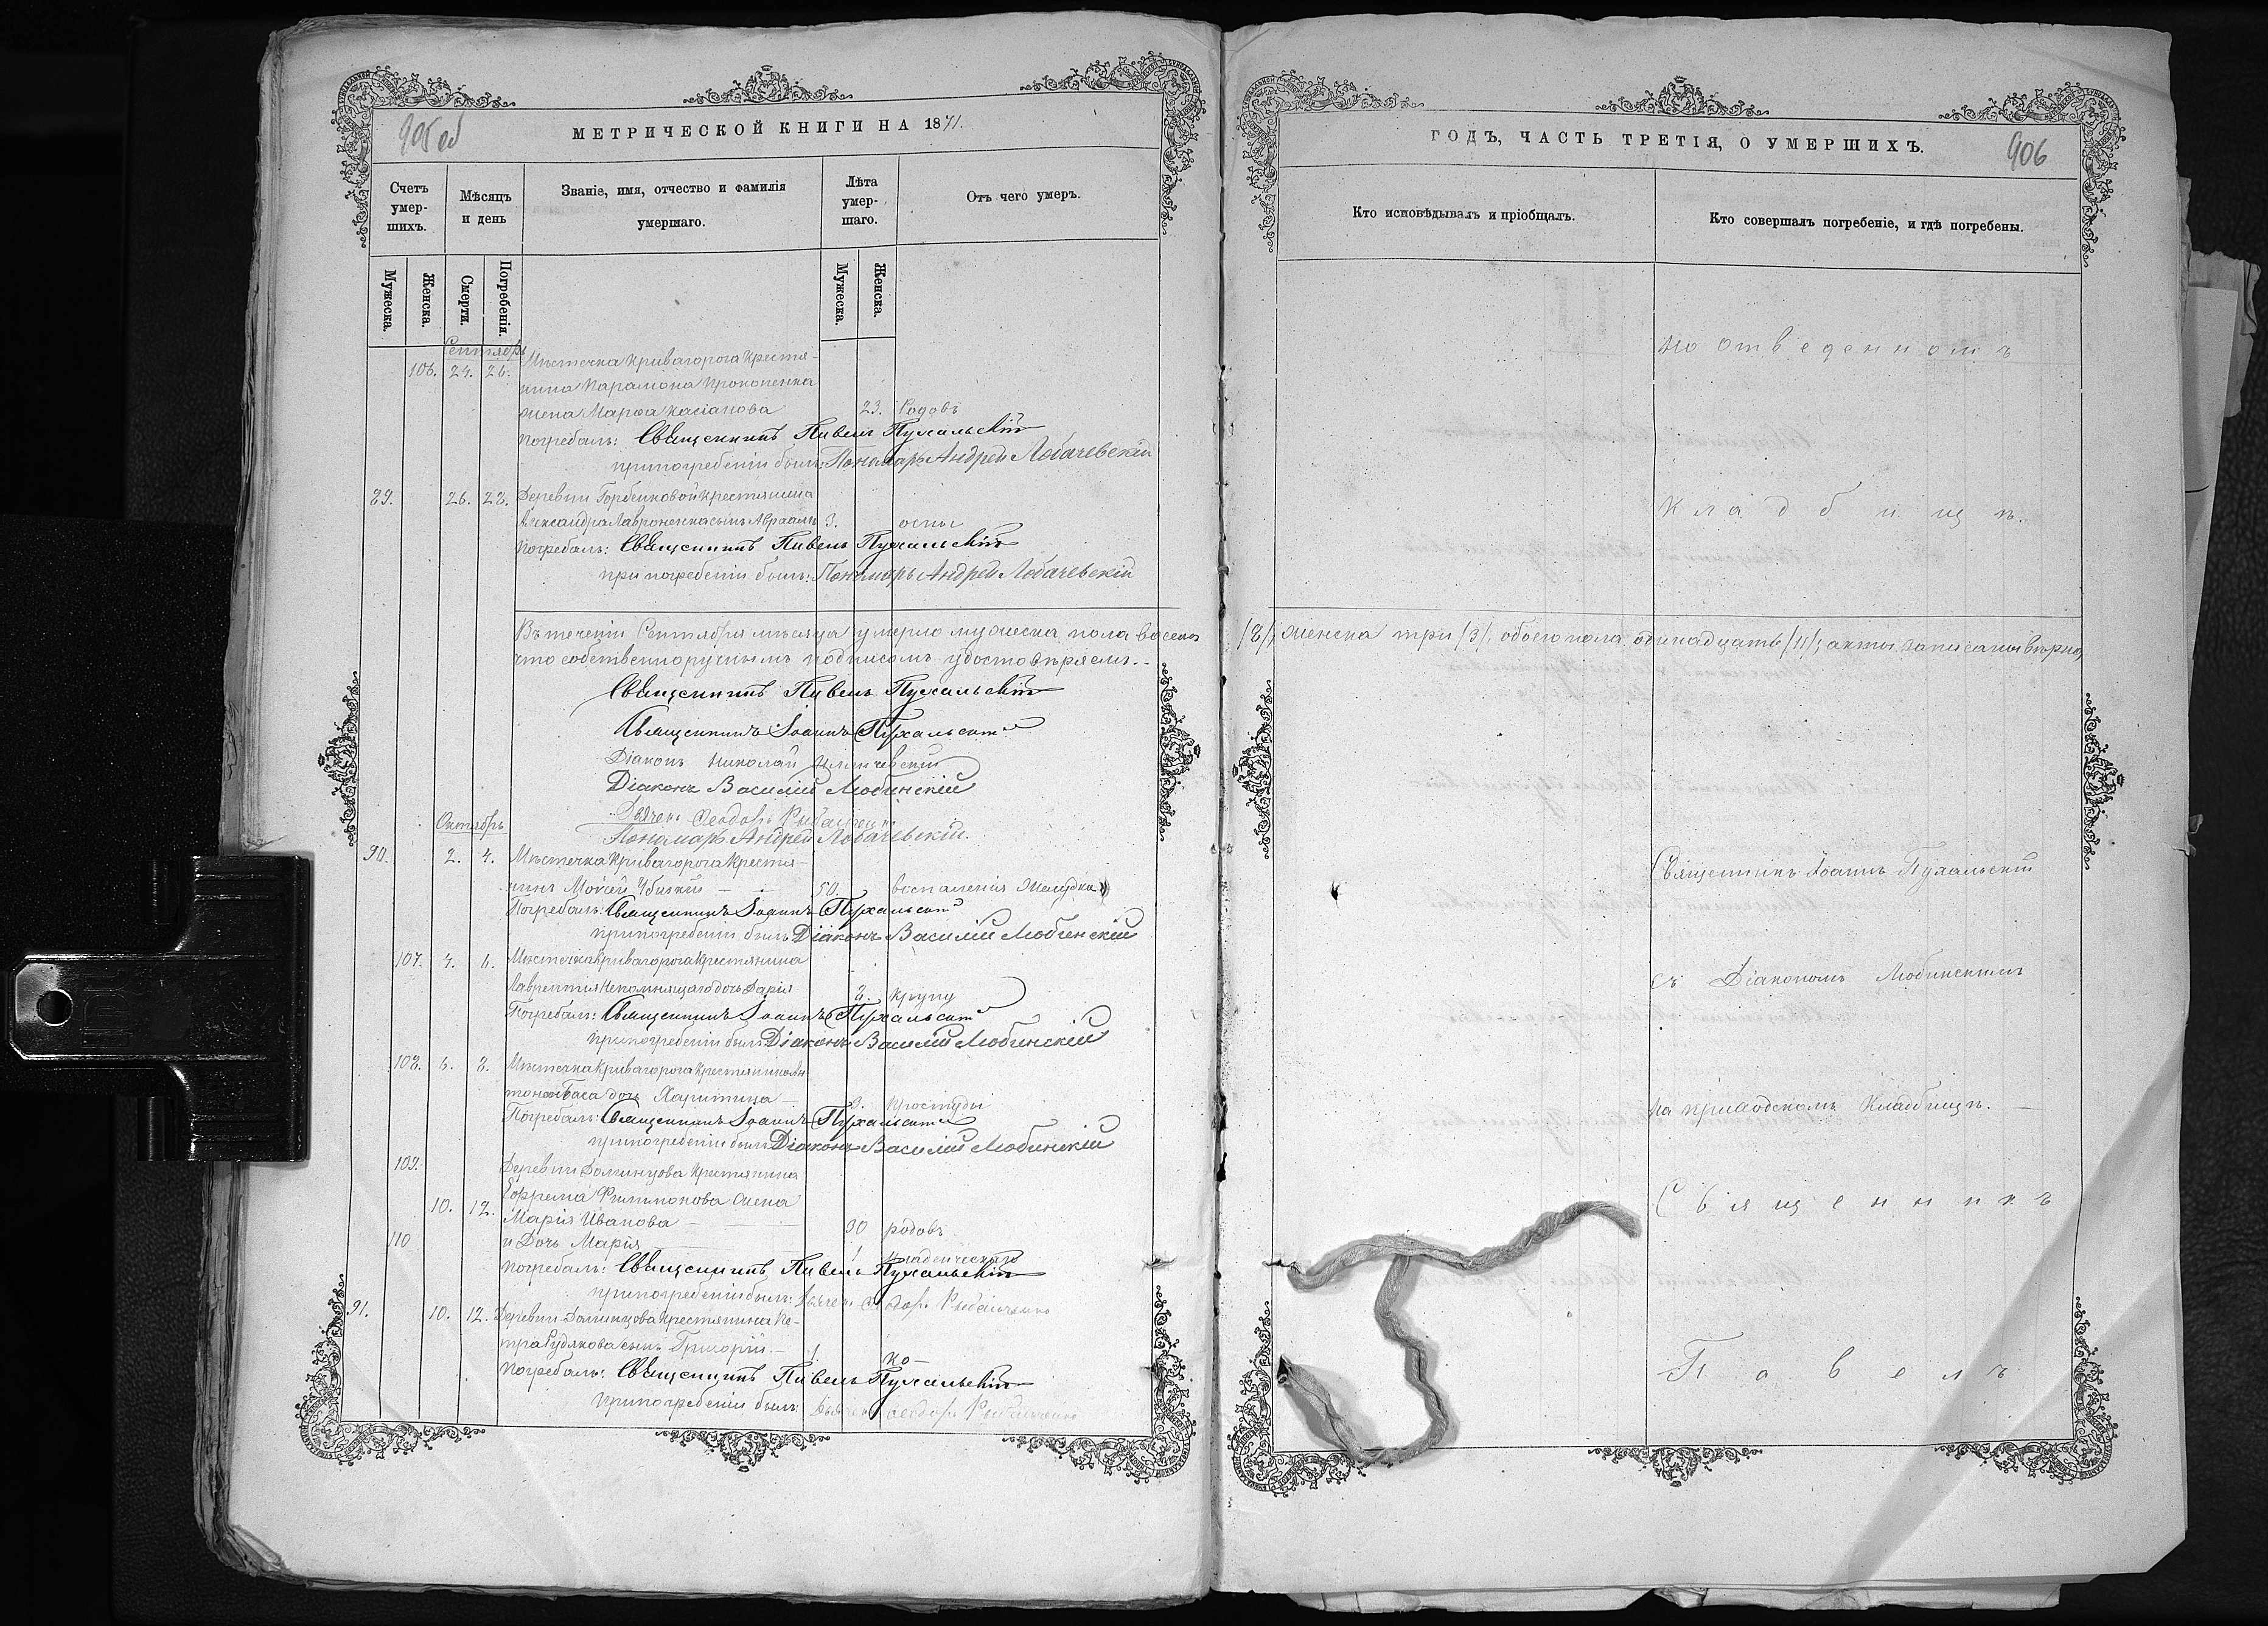 905 об
МЕТРИЧЕСКОЙ КНИГИ НА 1871.
Счетъ умер-шихъ.
Мѣсяцъ и день
Званіе, имя, отчество и фамилія умершаго.
Лѣта умер-шаго.
Отъ чего умеръ.
Мужеска.
Женска.
Смерти.
Погребенія.
Мужеска.
Женска.
Сентябрь
106. 24. 26. Мѣстечка Кривагорога Крестья-
нина Парамона Прокопенка
жена Марфа Касіанова 23. Родовъ
Погребалъ: Священникъ Павелъ Пухальскій
при погребеніи былъ: Пономарь Андрей Лобачевскій
89. 26. 28. Деревни Горбенковой Крестьянина
Александра Лавроненка сынъ Авраамъ 3. оспы
Погребалъ: Священникъ Павелъ Пухальскій
при погребеніи былъ: Пономарь Андрей Лобачевскій
Въ теченіи Сентября мѣсяца умерло мужеска пола восемь
что собственноручнымъ подписомъ удостовѣряемъ.
Священникъ Павелъ Пухальскій
Священникъ Іоаннъ Пухальскій
Діаконъ Николай
Діаконъ Василій Любинскій
Дьячекъ Феодоръ
Пономарь Андрей Лобачевскій.
Октябрь
90. 2. 4. Мѣстечка Кривагорога Крестья-
нинъ Моисей 50. воспаленія желудка
Погребалъ: Священникъ Іоаннъ Пухальскій
при погребеніи былъ Діаконъ Василій Любинскій
107. 4. 6. Мѣстечка Кривагорога Крестьянина
Лаврентія Непомнящаго дочь Дарія 2. Крупу
Погребалъ: Священникъ Іоаннъ Пухальскій
при погребеніи былъ Діаконъ Василій Любинскій
108. 6. 8. Мѣстечка Кривагорога Крестьянина Ан-
тона Баса дочь Харитина 3. Простуды
Погребалъ: Священникъ Іоаннъ Пухальскій
при погребеніи былъ Діаконъ Василій Любинскій
109. Деревни Долинцова Крестьянина
Ефрема Филимонова жена
10. 12. Марія Иванова 30 родовъ
110 и Дочь Марія 1 Младенческаго
Погребалъ: Священникъ Павелъ Пухальскій
при погребеніи былъ: Дьячекъ Феодоръ
91. 10. 12. Деревни Долинцова Крестьянина Пе-
тра Рудякова сынъ Григорій 1
Погребалъ: Священникъ Павелъ Пухальскій
при погребеніи былъ: Дьячекъ Феодоръ
ГОДЪ, ЧАСТЬ ТРЕТІЯ, О УМЕРШИХЪ.
906
Кто исповѣдывалъ и пріобщалъ.
Кто совершалъ погребеніе, и гдѣ погребены.
на отведенномъ
Кладбищѣ.
/8/, женска три /3/, обоего пола одинадцать /11/; акты записаны вѣрно,
Священникъ Іоаннъ Пухальскій
съ Діакономъ Любинскимъ
на приходскомъ Кладбищѣ.
Священникъ
Павелъ